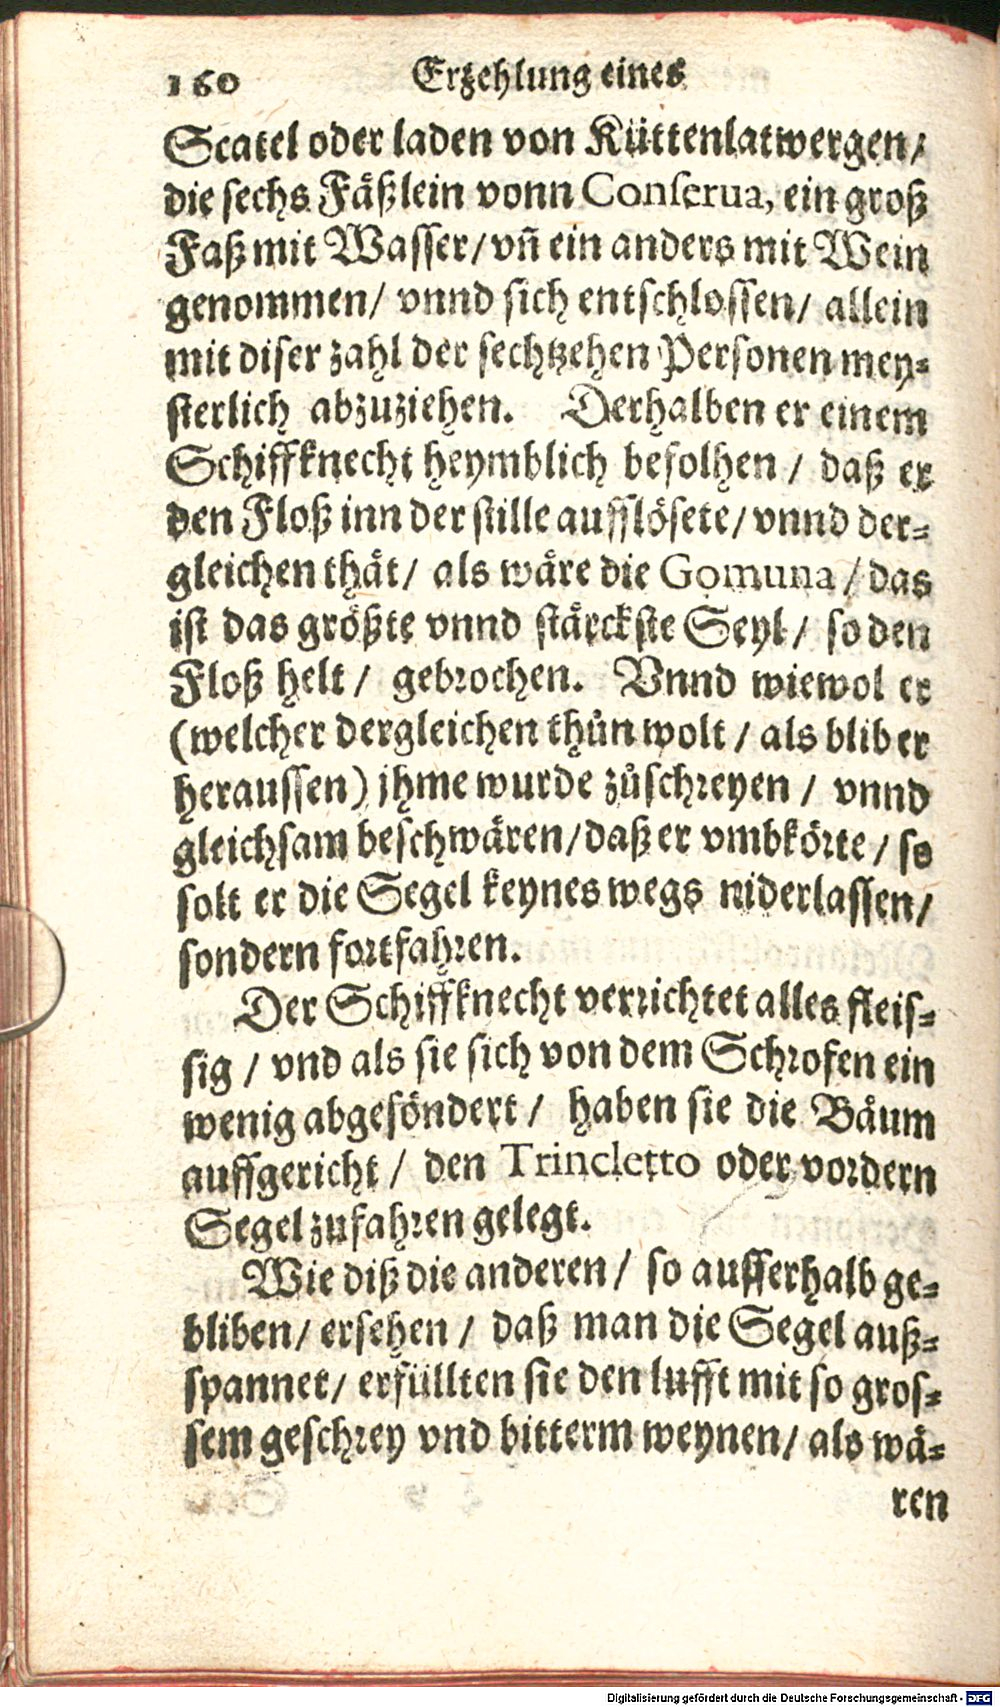 160 Erzehlung eines
Scatel oder laden von Küttenlatwergen/
die sechs Fäßlein vonn Conserua, ein groß
Faß mit Wasser/ vñ ein anders mit Wein
genommen/ vnnd sich entschlossen/ allein
mit diser zahl der sechtzehen Personen mey-
sterlich abzuziehen. Derhalben er einem
Schiffknecht heymblich befolhen / daß er
den Floß inn der stille aufflösete/ vnnd der-
gleichen thät/ als wäre die Gomuna / das
ist das größte vnnd stärckste Seyl / so den
Floß helt / gebrochen. Vnnd wiewol er
(welcher dergleichen thůn wolt / als blib er
heraussen) jhme wurde zůschreyen / vnnd
gleichsam beschwären/ daß er vmbkörte / so
solt er die Segel keynes wegs niderlassen/
sondern fortfahren.
Der Schiffknecht verrichtet alles fleis-
sig / vnd als sie sich von dem Schrofen ein
wenig abgesöndert / haben sie die Bäum
auffgericht / den Trincletto oder vordern
Segel zufahren gelegt.
Wie diß die anderen / so ausserhalb ge-
bliben/ ersehen / daß man die Segel auß-
spannet/ erfüllten sie den lufft mit so gros-
sem geschrey vnd bitterm weynen/ als wä-
ren
Digitalisierung gefördert durch die Deutsche Forschungsgemeinschaft - DFG